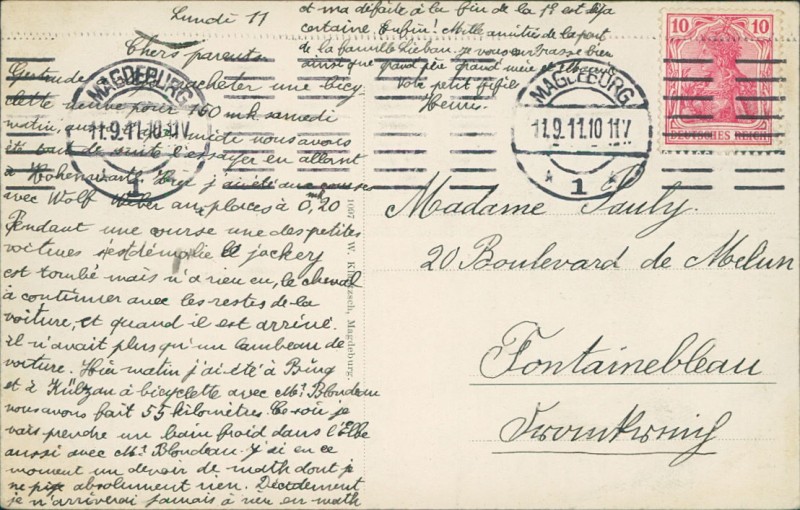 Lundi 11
Chers parents
Gertrude acheter une bicy
clette neuve pour 160 mk samedi
matin, midi nous avons
été tout de suite l'essayer en allant
à Hohenwarthe. Hier j'ai été aux courses
avec Wolf Weber aux places à 0,20 mk
Pendant une course une des petites
voitures s'est démolie le jockey
est tombé mais n'a rien eu, le cheval
à continuer avec les restes de la
voiture, et quand il est arrivé
il n'avait plus qu'un lambeau de
voiture. Hier matin j'ai été à Burg
et à Külzau à bicyclette avec Mr Blondeau
nous avons fait 55 kilomètres. Ce soir je
vais prendre un bain froid dans l'Elbe
aussi avec Mr Blondeau. J'ai en ce
moment un devoir de math dont je
ne pige absolument rien. Décidément
je n'arriverai jamais à rien en math
et ma défaite à la fin de la 1e est déjà
certaine. Enfin! Mille amitiés de la part
de la famille je vous embrasse bien
ainsi que grand père grand mère et
Votre petit fifils
Henri
1097 W. Magdeburg.
MAGDEBURG
11.9.11.10-11V
1
MAGDEBURG
11.9.11.10-11V
* 1 *
10 10
DEUTSCHES REICH
Madame Pauly.
20 Boulevard de Melun
Fontainebleau
Frankreich